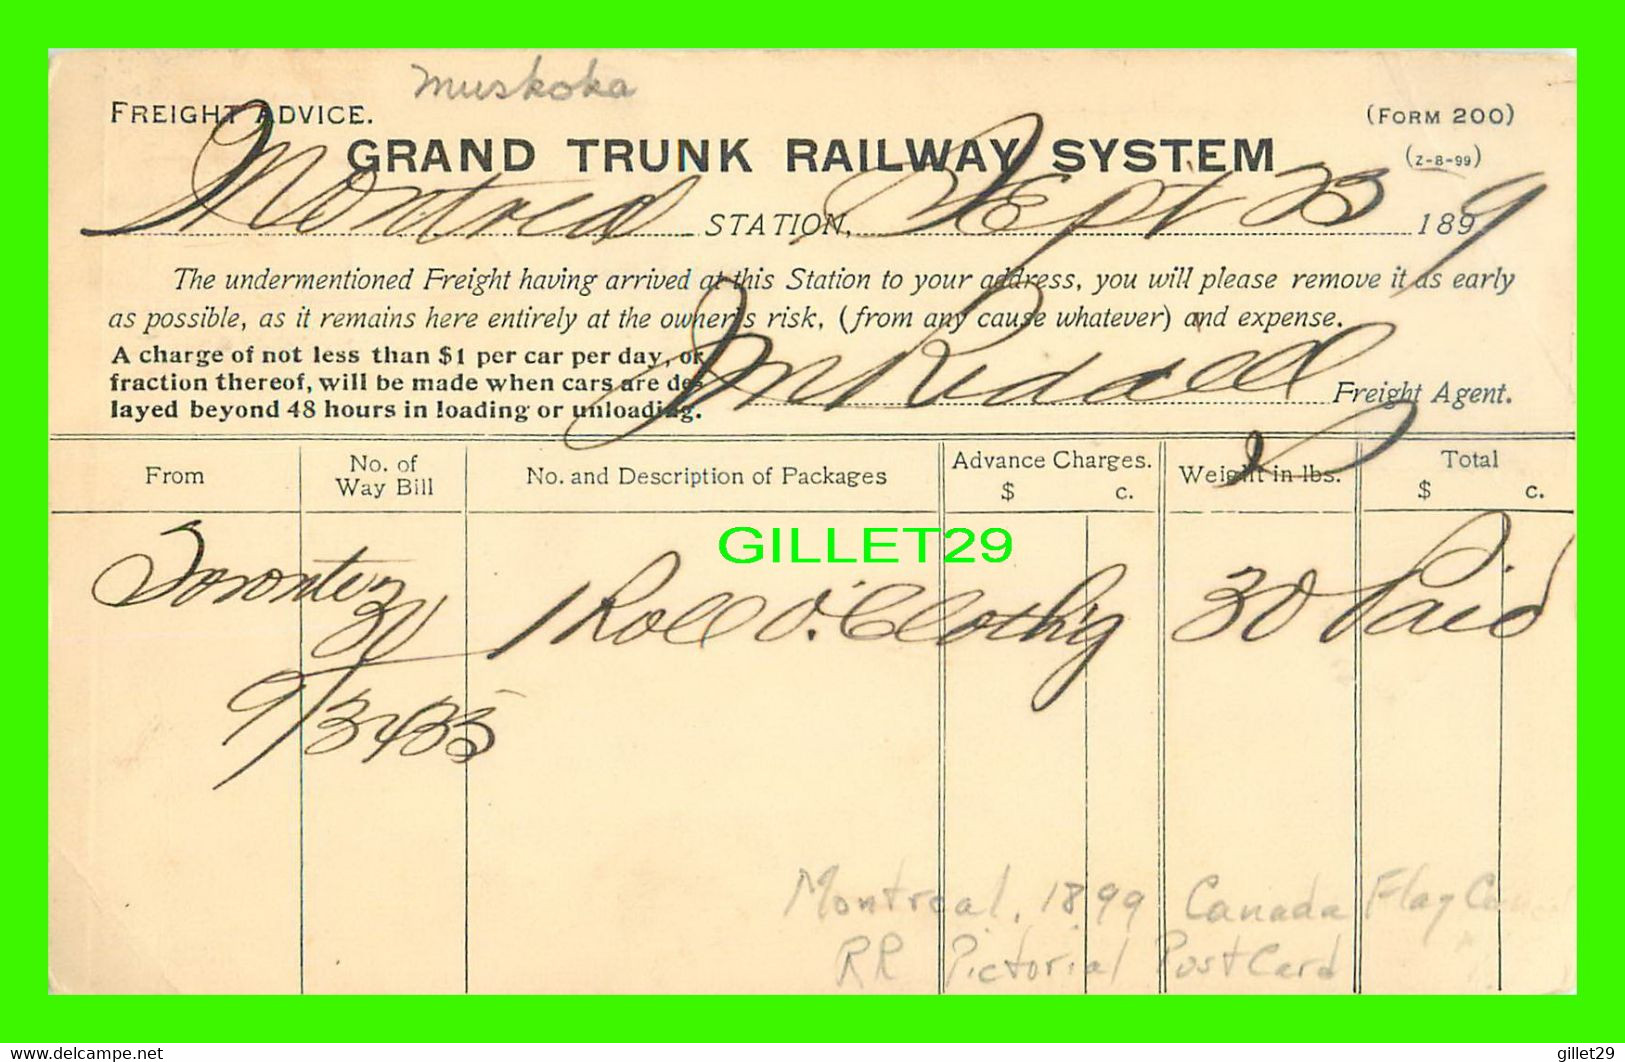 Muskoka
FREIGHT ADVICE.
(FORM 200)
GRAND TRUNK RAILWAY SYSTEM
(Z-8-99)
Montreal STATION, Sept 23 1899
The undermentioned Freight having arrived at this Station to your address, you will please remove it as early
as possible, as it remains here entirely at the owner's risk, (from any cause whatever) and expense.
A charge of not less than $1 per car per day, or
fraction thereof, will be made when cars are de-
layed beyond 48 hours in loading or unloading.
Freight Agent.
From No. of Way Bill No. and Description of Packages Advance Charges. $ c. Weight in lbs. Total $ c.
GILLET29
Toronto 1 Roll 30 Paid
Montreal, 1899 Canada Flag
RR Pictorial Post Card
delcampe.net
gillet29